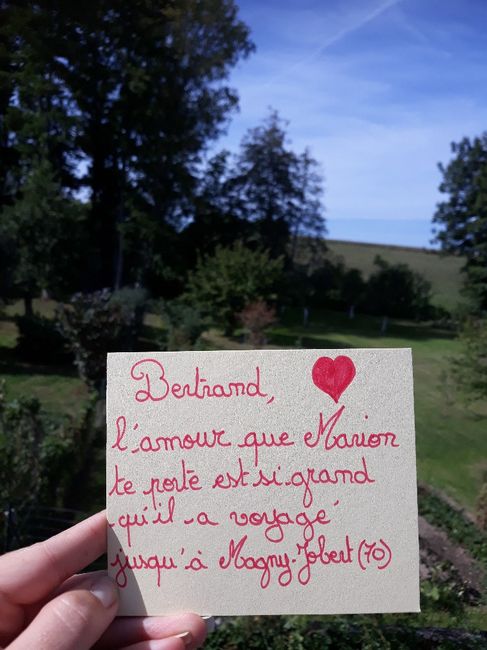 Bertrand,
l'amour que Marion
te porte est si grand
qu'il a voyagé
jusqu'à Magny-Jobert (70)